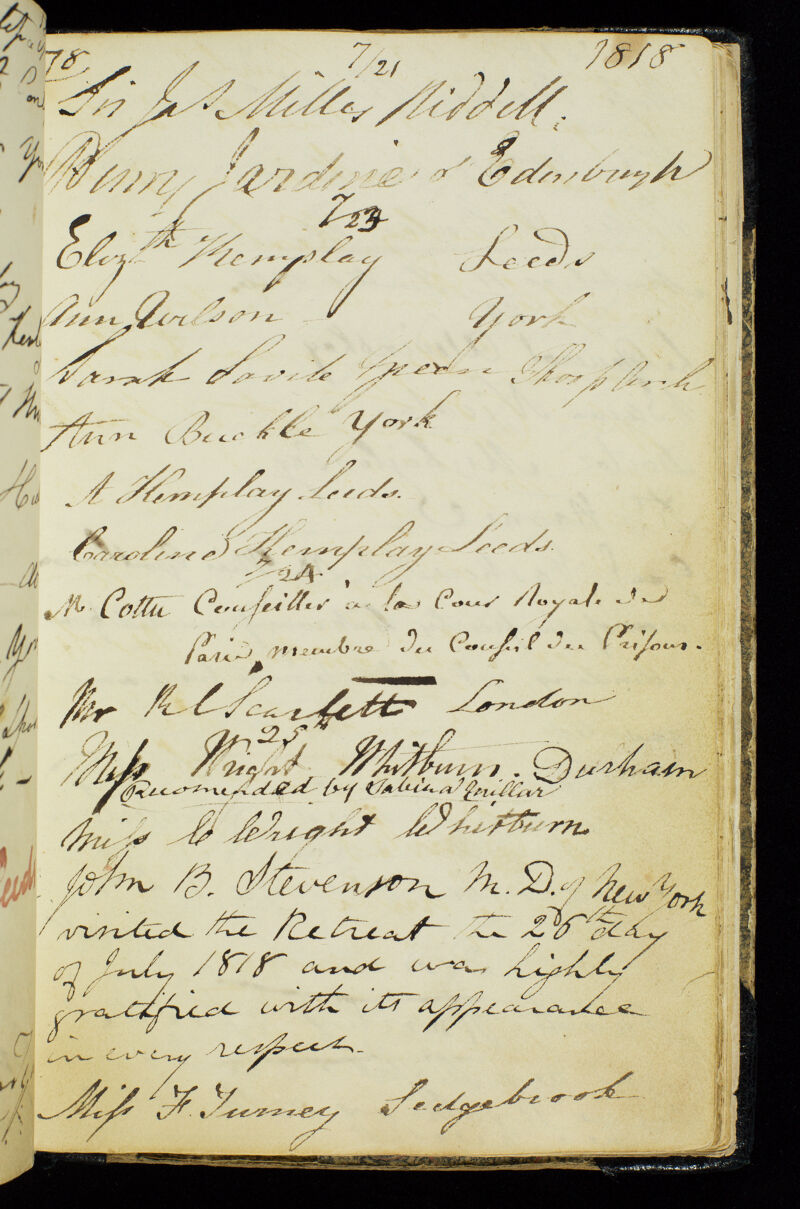 78 7/21 1818
Sir Jas Milles Riddell.
Henry Jardine of Edinburgh
7/23
Elizth Kemplay Leeds
Ann Wilson — York
Sarah Savile Thorp Arch
Ann Buckle York
A Kemplay Leeds.
Caroline Kemplay Leeds.
7/24
M. Cottu Conseiller à la Cour Royale de
Paris, membre du Conseil des Prisons.
Mr R C Scarlett London
25th
Miss Wright Whitburn. Durham
Recomended by Sabina Millar
Miss C Wright Whitburn
John B. Stevenson M. D. of New York
visited the Retreat the 26th day
of July 1818 and was highly
gratified with its appearance
in every respect.
Miss F. Turney Sedgebrook